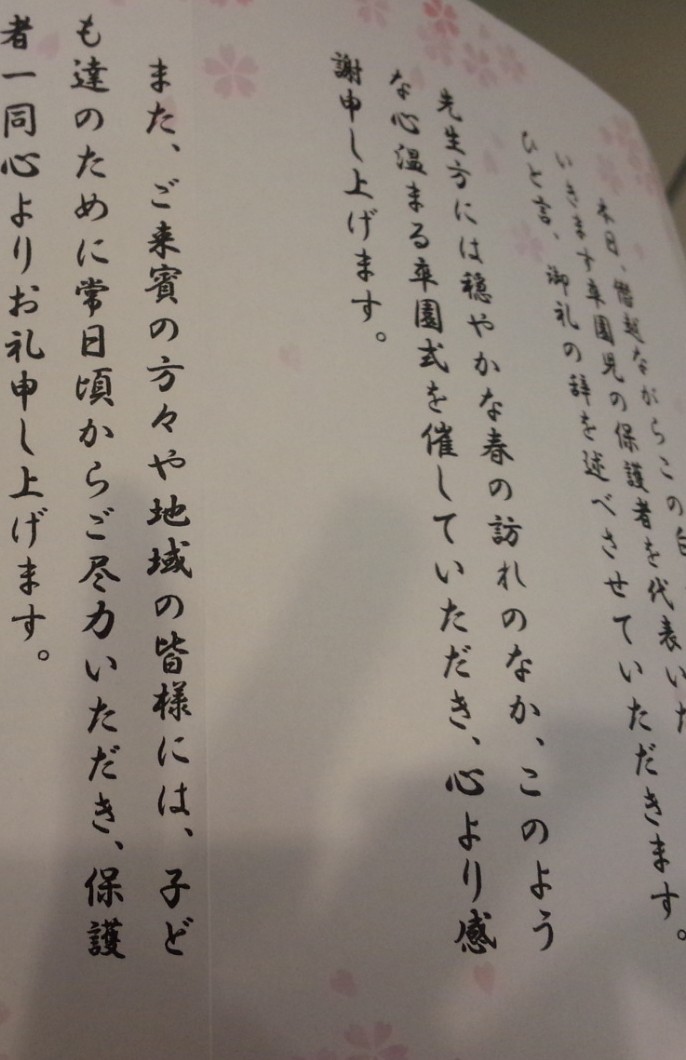 本日、僭越ながらこの
いきます卒園児の保護者を代表いた
ひと言、御礼の辞を述べさせていただきます。
先生方には穏やかな春の訪れのなか、このよう
な心温まる卒園式を催していただき、心より感
謝申し上げます。
また、ご来賓の方々や地域の皆様には、子ど
も達のために常日頃からご尽力いただき、保護
者一同心よりお礼申し上げます。